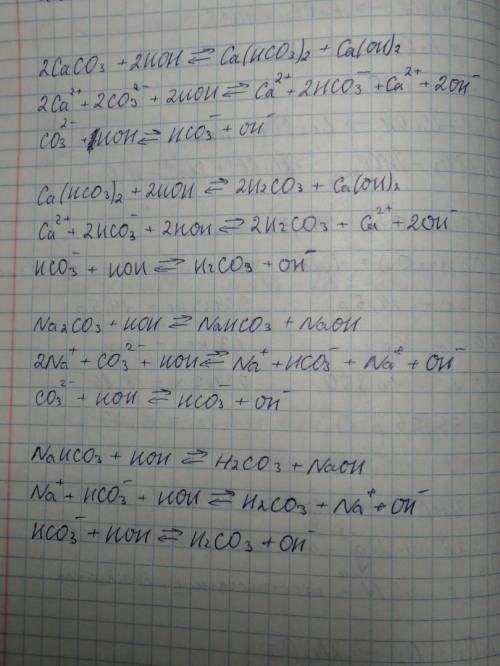 2CaCO₃ + 2HOH ⇄ Ca(HCO₃)₂ + Ca(OH)₂
2Ca²⁺ + 2CO₃²⁻ + 2HOH ⇄ Ca²⁺ + 2HCO₃⁻ + Ca²⁺ + 2OH⁻
CO₃²⁻ + HOH ⇄ HCO₃⁻ + OH⁻
Ca(HCO₃)₂ + 2HOH ⇄ 2H₂CO₃ + Ca(OH)₂
Ca²⁺ + 2HCO₃⁻ + 2HOH ⇄ 2H₂CO₃ + Ca²⁺ + 2OH⁻
HCO₃⁻ + HOH ⇄ H₂CO₃ + OH⁻
Na₂CO₃ + HOH ⇄ NaHCO₃ + NaOH
2Na⁺ + CO₃²⁻ + HOH ⇄ Na⁺ + HCO₃⁻ + Na⁺ + OH⁻
CO₃²⁻ + HOH ⇄ HCO₃⁻ + OH⁻
NaHCO₃ + HOH ⇄ H₂CO₃ + NaOH
Na⁺ + HCO₃⁻ + HOH ⇄ H₂CO₃ + Na⁺ + OH⁻
HCO₃⁻ + HOH ⇄ H₂CO₃ + OH⁻